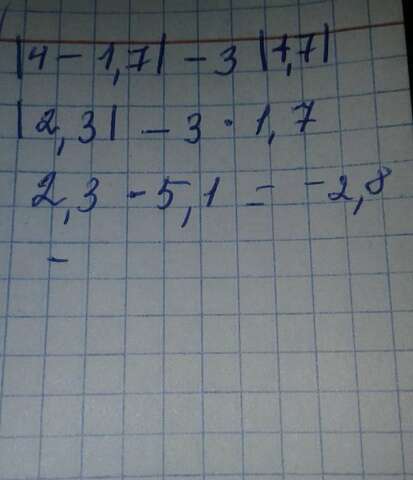 |4 - 1,7| - 3 |1,7|
|2,3| - 3 · 1,7
2,3 - 5,1 = -2,8
-